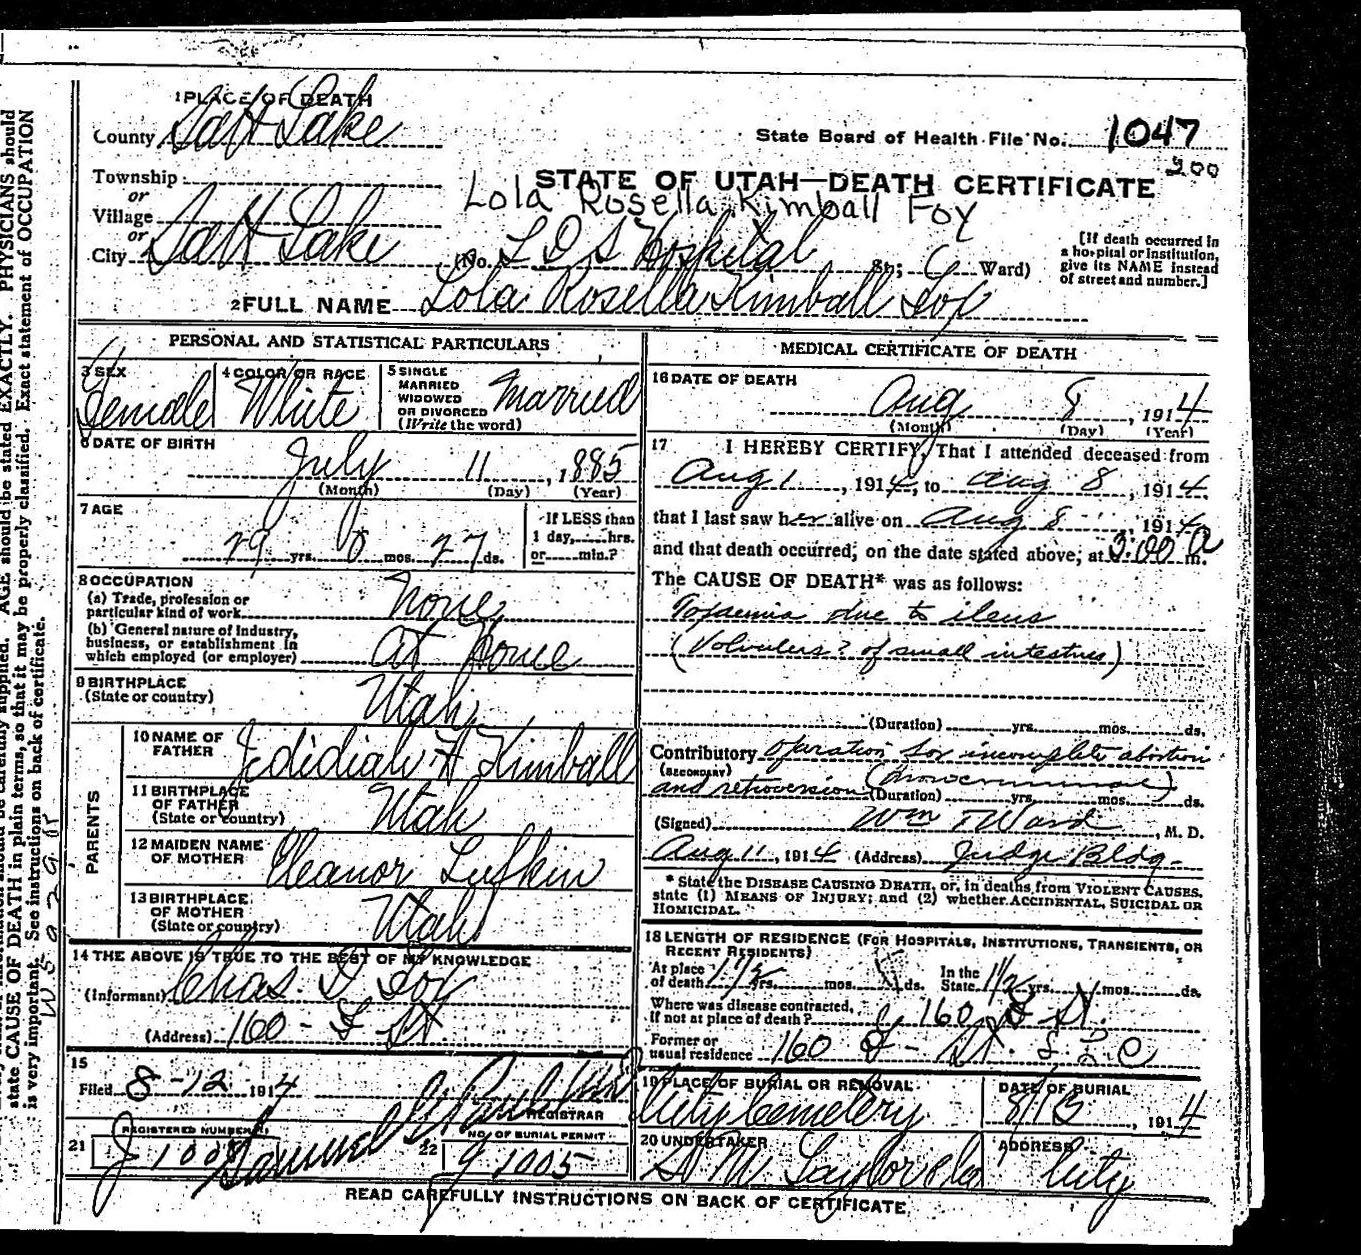 1 PLACE OF DEATH
County Salt Lake
State Board of Health File No. 1047
200
Township
or
Village
or
STATE OF UTAH—DEATH CERTIFICATE
Lola Rosella Kimball Foy
City Salt Lake (No. L D S Hospital St; Ward)
[If death occurred in a hospital or institution, give its NAME instead of street and number.]
2 FULL NAME Lola Rosella Kimball Foy
PERSONAL AND STATISTICAL PARTICULARS
3 SEX Female
4 COLOR OR RACE White
5 SINGLE MARRIED WIDOWED OR DIVORCED (Write the word) Married
6 DATE OF BIRTH
July 11, 1885
(Month) (Day) (Year)
7 AGE
29 yrs. 0 mos. 27 ds.
If LESS than 1 day, hrs. or min.?
8 OCCUPATION
(a) Trade, profession or particular kind of work None
(b) General nature of industry, business, or establishment in which employed (or employer) at Home
9 BIRTHPLACE
(State or country) Utah
PARENTS
10 NAME OF FATHER Jedidiah H Kimball
11 BIRTHPLACE OF FATHER (State or country) Utah
12 MAIDEN NAME OF MOTHER Eleanor Lufkin
13 BIRTHPLACE OF MOTHER (State or country) Utah
14 THE ABOVE IS TRUE TO THE BEST OF MY KNOWLEDGE
(Informant) Chas. I Foy
(Address) 160 - St.
15
Filed 8-12 1914
REGISTRAR
21 REGISTERED NUMBER J 1008
22 NO. OF BURIAL PERMIT 1005
MEDICAL CERTIFICATE OF DEATH
16 DATE OF DEATH
Aug 8, 1914
(Month) (Day) (Year)
17 I HEREBY CERTIFY, That I attended deceased from
Aug 1, 1914, to Aug 8, 1914,
that I last saw her alive on Aug 8, 1914,
and that death occurred, on the date stated above, at 3:00 a m.
The CAUSE OF DEATH* was as follows:
Toxaemia due to ileus
(Volvulus? of small intestines)
(Duration) yrs. mos. ds.
Contributory Operation for incomplete abortion
(SECONDARY)
and retroversion (Duration) yrs. mos. ds.
(Signed) Wm T Ward, M. D.
Aug 11, 1914 (Address) Judge Bldg.
* State the DISEASE CAUSING DEATH, or, in deaths from VIOLENT CAUSES, state (1) MEANS OF INJURY; and (2) whether ACCIDENTAL, SUICIDAL OR HOMICIDAL.
18 LENGTH OF RESIDENCE (FOR HOSPITALS, INSTITUTIONS, TRANSIENTS, OR RECENT RESIDENTS)
At place of death 1 1/2 yrs. mos. ds. In the State yrs. mos. ds.
Where was disease contracted, if not at place of death? 160 St.
Former or usual residence 160 St. S L C
19 PLACE OF BURIAL OR REMOVAL City Cemetery
DATE OF BURIAL 8/13, 1914
20 UNDERTAKER S M Taylor & Co
ADDRESS City
READ CAREFULLY INSTRUCTIONS ON BACK OF CERTIFICATE
AGE should be stated EXACTLY. PHYSICIANS should
state CAUSE OF DEATH in plain terms, so that it may be properly classified. Exact statement of OCCUPATION
is very important. See instructions on back of certificate.